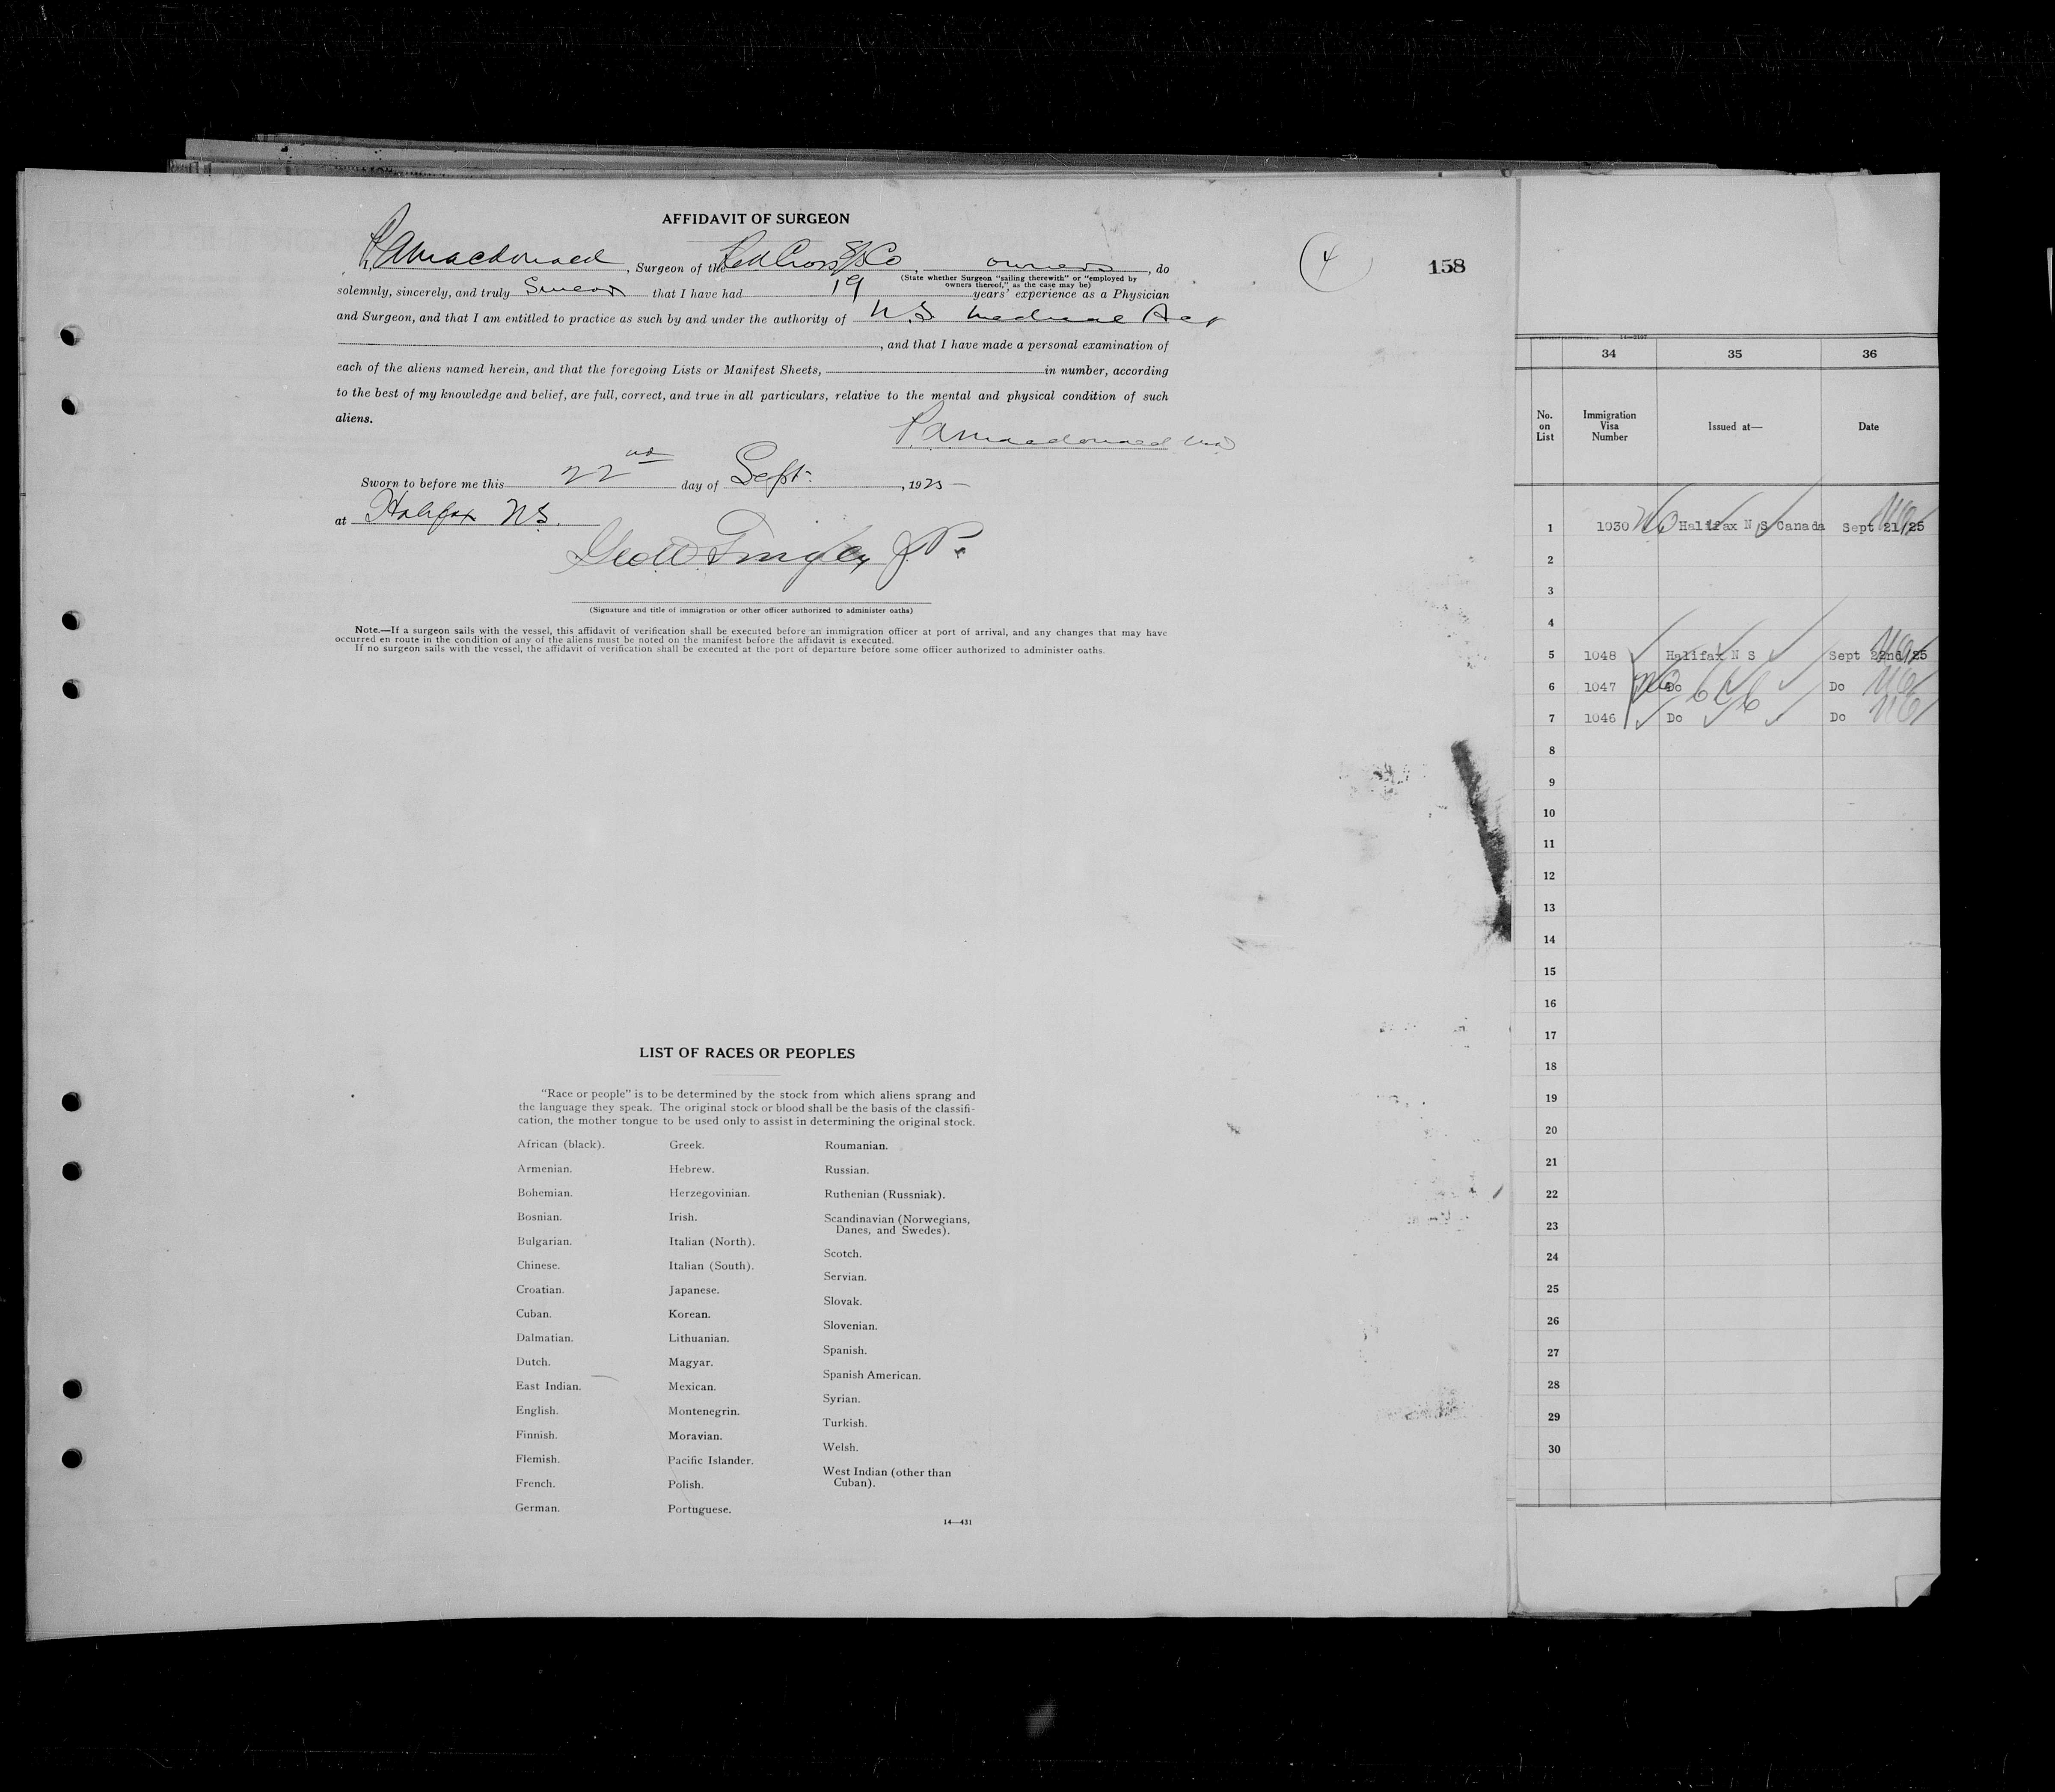 AFFIDAVIT OF SURGEON
I, P A Macdonald, Surgeon of the Red Cross S/S Co, owners, do
(State whether Surgeon "sailing therewith" or "employed by
owners thereof," as the case may be)
solemnly, sincerely, and truly Swear that I have had 19 years' experience as a Physician
and Surgeon, and that I am entitled to practice as such by and under the authority of N.S Medical Act
, and that I have made a personal examination of
each of the aliens named herein, and that the foregoing Lists or Manifest Sheets, in number, according
to the best of my knowledge and belief, are full, correct, and true in all particulars, relative to the mental and physical condition of such
aliens.
P A Macdonald MD
Sworn to before me this 22nd day of Sept., 1925
at Halifax N.S.
Geo W. Tingley J.P.
(Signature and title of immigration or other officer authorized to administer oaths)
Note.—If a surgeon sails with the vessel, this affidavit of verification shall be executed before an immigration officer at port of arrival, and any changes that may have
occurred en route in the condition of any of the aliens must be noted on the manifest before the affidavit is executed.
If no surgeon sails with the vessel, the affidavit of verification shall be executed at the port of departure before some officer authorized to administer oaths.
4
158
LIST OF RACES OR PEOPLES
"Race or people" is to be determined by the stock from which aliens sprang and
the language they speak. The original stock or blood shall be the basis of the classifi-
cation, the mother tongue to be used only to assist in determining the original stock.
African (black).
Armenian.
Bohemian.
Bosnian.
Bulgarian.
Chinese.
Croatian.
Cuban.
Dalmatian.
Dutch.
East Indian.
English.
Finnish.
Flemish.
French.
German.
Greek.
Hebrew.
Herzegovinian.
Irish.
Italian (North).
Italian (South).
Japanese.
Korean.
Lithuanian.
Magyar.
Mexican.
Montenegrin.
Moravian.
Pacific Islander.
Polish.
Portuguese.
Roumanian.
Russian.
Ruthenian (Russniak).
Scandinavian (Norwegians,
Danes, and Swedes).
Scotch.
Servian.
Slovak.
Slovenian.
Spanish.
Spanish American.
Syrian.
Turkish.
Welsh.
West Indian (other than
Cuban).
14—431
34 35 36
No.
on
List
Immigration
Visa
Number
Issued at—
Date
1 1030 Halifax N S Canada Sept 21/25
2
3
4
5 1048 Halifax N S Sept 22nd/25
6 1047 Do Do
7 1046 Do Do
8
9
10
11
12
13
14
15
16
17
18
19
20
21
22
23
24
25
26
27
28
29
30